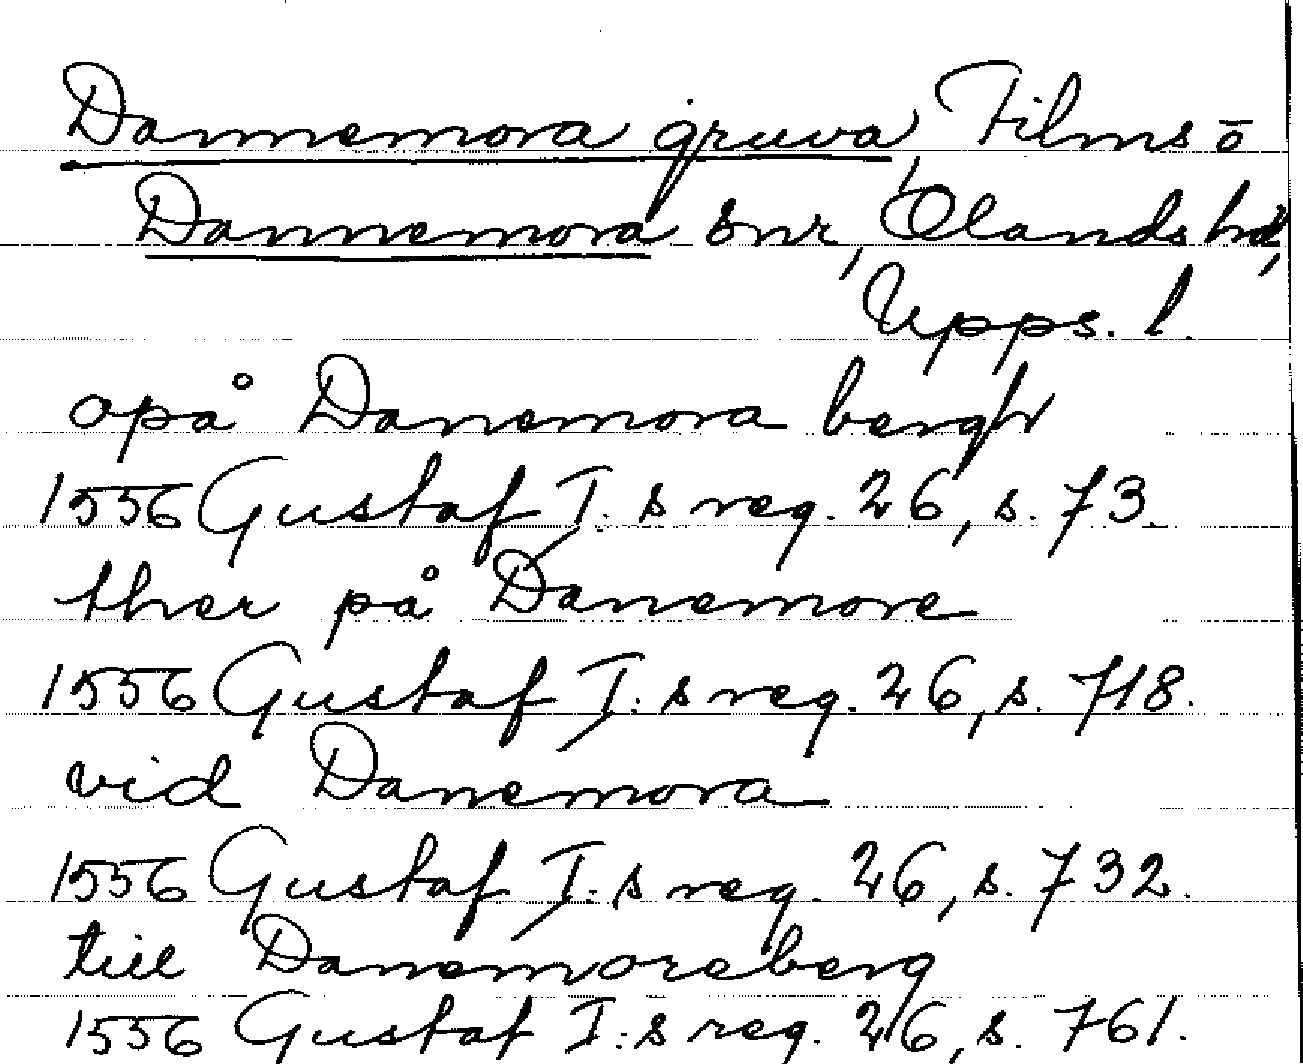 Dannemora gruva, Films o
Dannemora snr, Olands hd,
Upps. l.
opå Danemora bergh
1556 Gustaf I. s reg. 26, s. 73.
ther på Danemore
1556 Gustaf I: s reg. 26, s. 718.
vid Danemora
1556 Gustaf I: s reg. 26, s. 732.
till Danemoreberg
1556 Gustaf I: s reg. 26, s. 761.